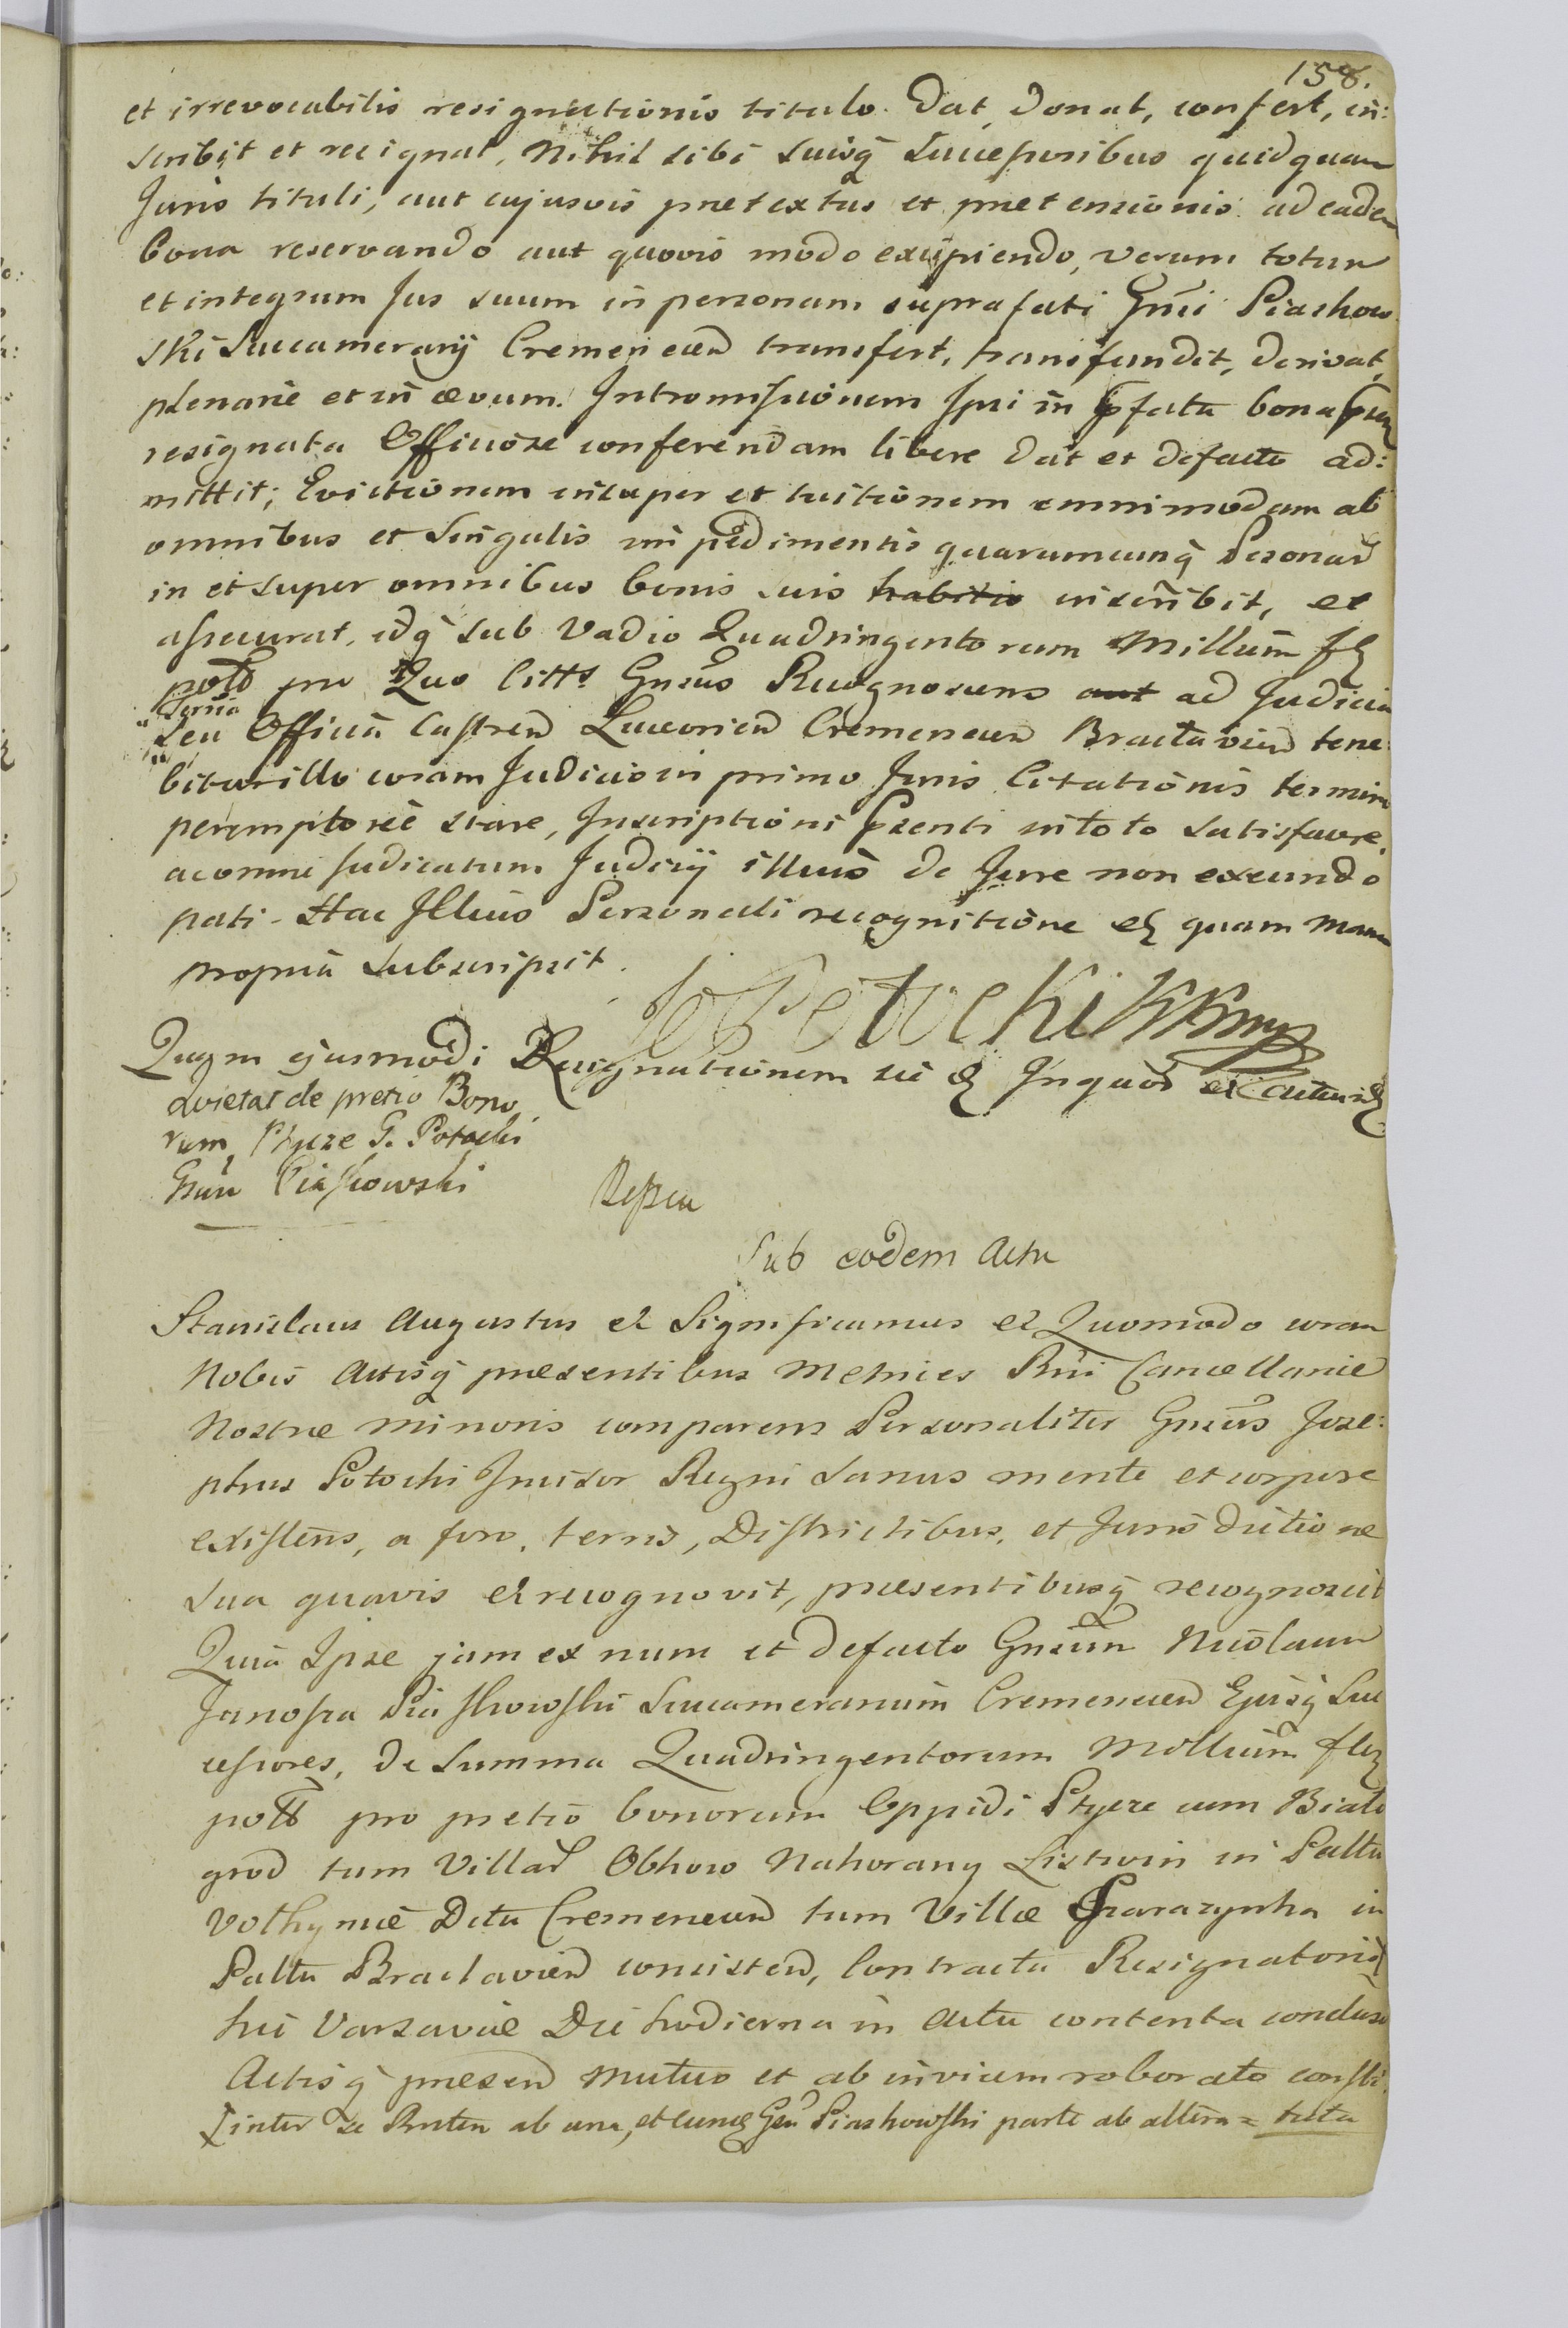 158.
et irrevocabilis resignationis titulo. Dat, Donat, confert, in:
scribit et resignat, Nihil sibi suisq Successoribus quidquam
Juris tituli, aut cujusvis prætextus et prætensionis ad eadem
bona reservando aut quovis modo excipiendo, verum totum
et integrum Jus suum in personam suprafati Gnsi Piaskow
ski Succamerarij Cremenecen transfert, transfundit, derivat,
plenarie et in ævum. Intromissionem Ipsi in pfata bona
resignata Officiose conferendam libere Dat et defacto ad:
mittit; Evictionem insuper et tuitionem omnimodam ab
omnibus et singulis impedimentis quarumcunq Personar
in et super omnibus bonis suis habitis inscribit, et
assecurat, idq sub Vadio Quadringentorum Millium fl
poll pro Quo Citts Gnsus Recognoscens aut ad Judicia
Terria
seu Officia Castren Luceorien Cremenecen Braclavien tene
bitur illo coram Judicio in primo Juris Citationis termino
peremptorie stare, Inscriptioni Psenti in toto satisfacere,
ac omne Judicatum Judicij illius de Jure non exeundo
pati. Hac Illius Personali recognitione quam Manu
propria subscripsit.
Je Potocki KKmp
Quam ejusmodi Resignationem Inquos et Actum
Quietat de pretio Bono
rum, Ptycze G. Potocki
Gnsu Piaskowski
Sub eodem Actu
Stanislaus Augustus et Significamus et Quomodo coram
Nobis Actisq præsentibus Metrices Rni Cancellariæ
Nostræ Minoris comparens Personaliter Gnsus Jose:
phus Potocki Incisor Regni sanus mente et corpore
existens, a foro, terris, Districtibus, et Jurisdictione
sua quavis et recognovit, præsentibusq recognoscit
Quia Ipse jam ex nunc et defacto Gnsum Nicolaum
Junosza Piaskowski Succamerarium Cremenecen Ejusq Suc
cessores, de Summa Quadringentorum Millium flor
poll pro pretio bonorum Oppidi Ptycze cum Biało
grod tum Villar Obhow Nahorany Listwin in Palltu
Volhyniæ Dctu Cremenecen tum Villæ Szarazynka in
Pallu Braclavien consisten, Contractu Resignatorio
hic Varsaviæ Die hodierna in Actu contenta concluso
Actisq præsen mutuo et ab invicem roborato consti:
inter se Rnten ab una, et eund Gsu Piaskowski parte ab altera = tuta